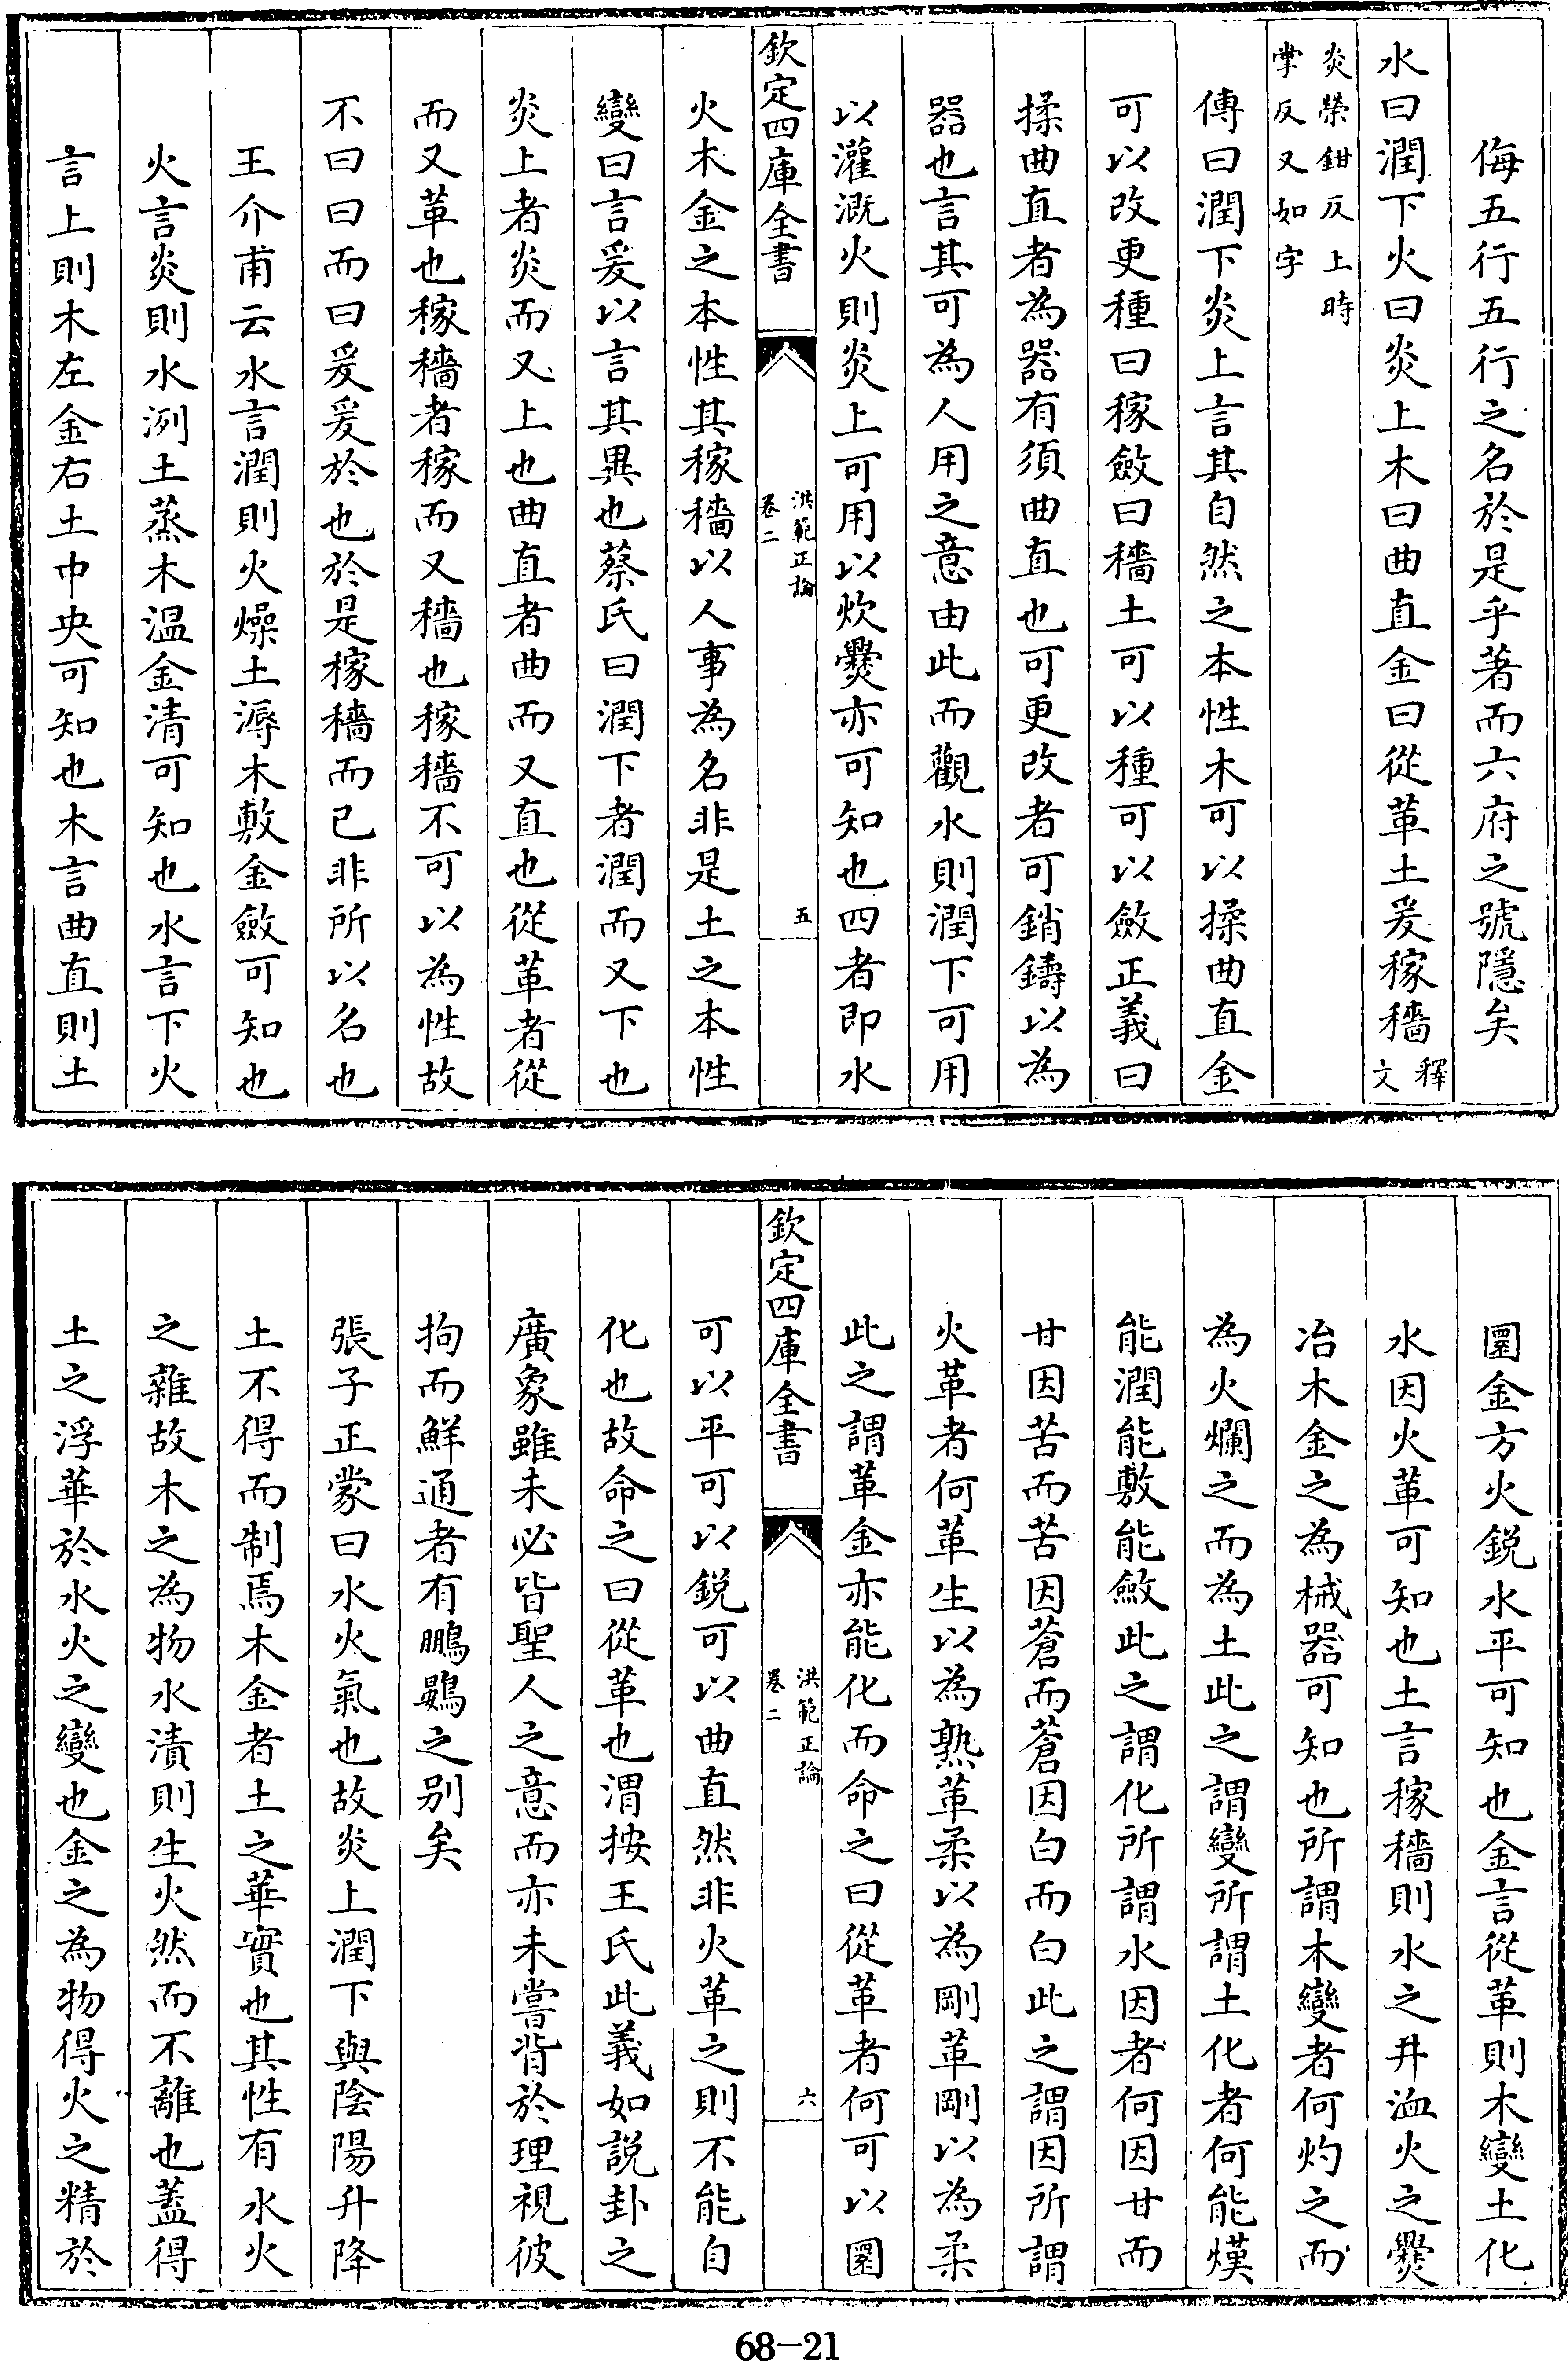 侮五行五行之名於是乎著而六府之號隱矣
水曰潤下火曰炎上木曰曲直金曰從革土爰稼穡釋文
炎榮鉗反上時
掌反又如字
傳曰潤下炎上言其自然之本性木可以揉曲直金
可以改更種曰稼斂曰穡土可以種可以斂正義曰
揉曲直者為器有須曲直也可更改者可銷鑄以為
器也言其可為人用之意由此而觀水則潤下可用
以灌溉火則炎上可用以炊爨亦可知也四者即水
欽定四庫全書
洪範正論
卷二
五
火木金之本性其稼穡以人事為名非是土之本性
變曰言爰以言其異也蔡氏曰潤下者潤而又下也
炎上者炎而又上也曲直者曲而又直也從革者從
而又革也稼穡者稼而又穡也稼穡不可以為性故
不曰曰而曰爰爰於也於是稼穡而已非所以名也
王介甫云水言潤則火燥土溽木敷金斂可知也
火言炎則水洌土蒸木温金清可知也水言下火
言上則木左金右土中央可知也木言曲直則土
圜金方火鋭水平可知也金言從革則木變土化
水因火革可知也土言稼穡則水之井洫火之爨
冶木金之為械器可知也所謂木變者何灼之而
為火爛之而為土此之謂變所謂土化者何能熯
能潤能敷能斂此之謂化所謂水因者何因甘而
甘因苦而苦因蒼而蒼因白而白此之謂因所謂
火革者何革生以為熟革柔以為剛革剛以為柔
此之謂革金亦能化而命之曰從革者何可以圜
欽定四庫全書
洪範正論
卷二
六
可以平可以鋭可以曲直然非火革之則不能自
化也故命之曰從革也渭按王氏此義如説卦之
廣象雖未必皆聖人之意而亦未嘗背於理視彼
拘而鮮通者有鵬鷃之别矣
張子正蒙曰水火氣也故炎上潤下與陰陽升降
土不得而制焉木金者土之華實也其性有水火
之雜故木之為物水漬則生火然而不離也蓋得
土之浮華於水火之變也金之為物得火之精於
68-21